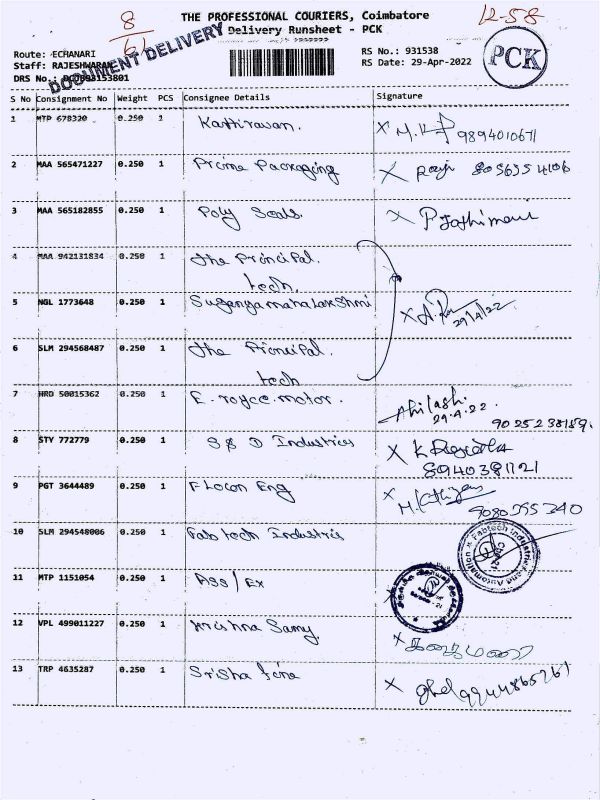 8
61
THE PROFESSIONAL COURIERS, Coimbatore
12-58
Delivery Runsheet - PCK
DOCUMENT DELIVERY
PCK
Route: ECHANARI
RS No.: 931538
Staff: RAJESHWARAN
RS Date: 29-Apr-2022
DRS No.:
S No Consignment No Weight PCS Consignee Details Signature
1 MTP 678320 0.250 1 Kathiravan. X M. 9894010671
2 MAA 565471227 0.250 1 Prime Packaging X Raja 8056554106
3 MAA 565182855 0.250 1 Poly Seals. X P Jothimani
4 MAA 942131834 0.250 1 The Principal.
tech.
5 NGL 1773648 0.250 1 Suganyamahalakshmi X 29/4/22
6 SLM 294568487 0.250 1 The Principal.
tech
7 HRD 50015362 0.250 1 E. royce motor. Ahilash.
29.4.22
9025238189.
8 STY 772779 0.250 1 S & D Industries X K
8940381121
9 PGT 3644489 0.250 1 Flocon Eng X M.
9080395340
10 SLM 294548006 0.250 1 Fabtech Industris
Fabtech Industries and Automation
11 MTP 1151054 0.250 1 Ass/Ex
12 VPL 499011227 0.250 1 Krishna Samy. X
13 TRP 4635287 0.250 1 Srisha fine X 9944865261